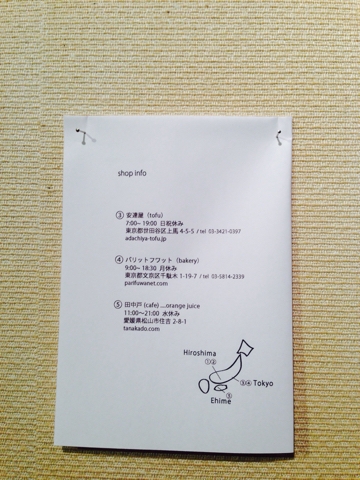 shop info
③ 安達屋（tofu）
7:00~ 19:00 日祝休み
東京都世田谷区上馬 4-5-5 / tel 03-3421-0397
adachiya-tofu.jp
④ パリットフワット（bakery）
9:00~ 18:30 月休み
東京都文京区千駄木 1-19-7 / tel 03-5814-2339
paritfuwanet.com
⑤ 田中戸 (cafe) ....orange juice
11:00~21:00 水休み
愛媛県松山市住吉 2-8-1
tanakado.com
Hiroshima
①②
③④ Tokyo
⑤
Ehime